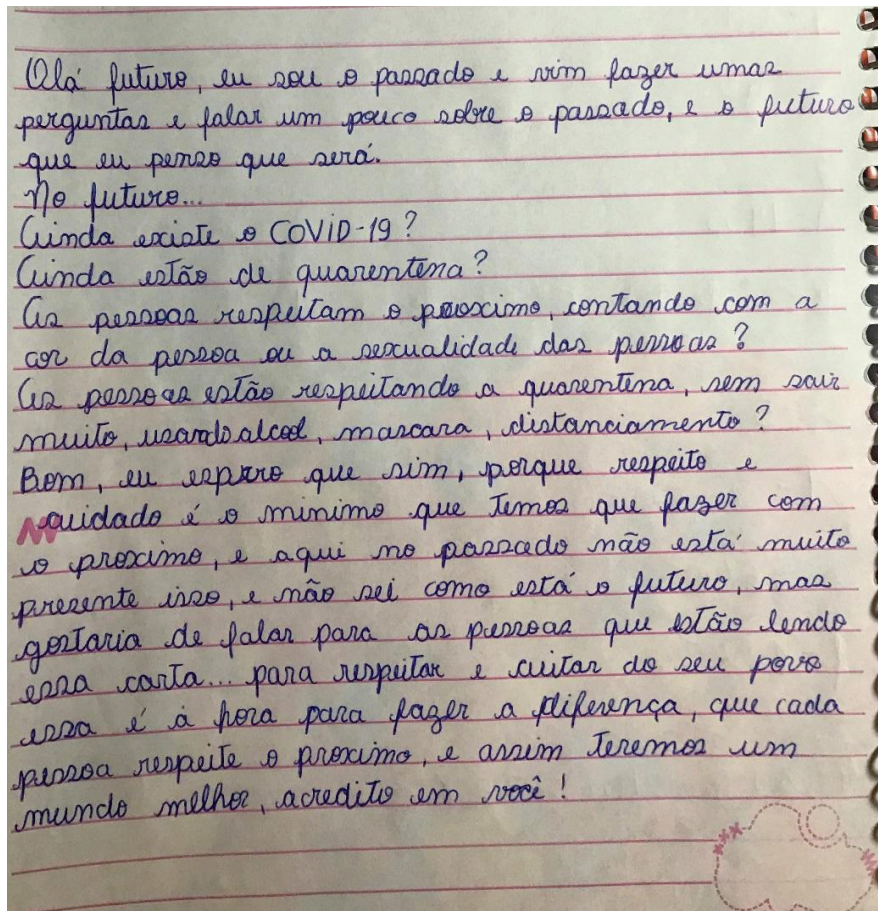 Olá futuro, eu sou o passado e vim fazer umas
perguntas e falar um pouco sobre o passado, e o futuro
que eu penso que será.
No futuro...
Ainda existe o COVID-19?
Ainda estão de quarentena?
As pessoas respeitam o proximo, contando com a
cor da pessoa ou a sexualidade das pessoas?
As pessoas estão respeitando a quarentena, sem sair
muito, usando alcool, mascara, distanciamento?
Bom, eu espero que sim, porque respeito e
cuidado é o minimo que temos que fazer com
o proximo, e aqui no passado não está muito
presente isso, e não sei como está o futuro, mas
gostaria de falar para as pessoas que estão lendo
essa carta... para respeitar e cuitar do seu povo
essa é à hora para fazer a diferença, que cada
pessoa respeite o proximo, e assim teremos um
mundo melhor, acredito em você!